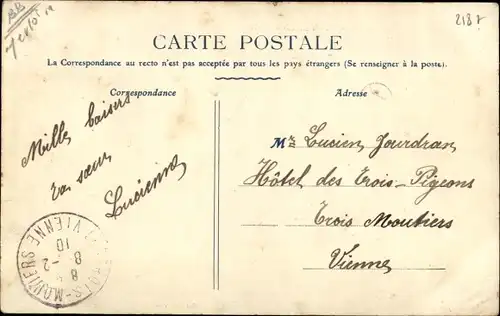 2187
CARTE POSTALE
La Correspondance au recto n'est pas acceptée par tous les pays étrangers (Se renseigner à la poste).
Correspondance
Adresse
Mille baisers
Ta sœur
Lucienne
Mr Lucien Jourdran
Hôtel des Trois-Pigeons
Trois Moutiers
Vienne
TROIS-MOUTIERS VIENNE
8
8-2
10